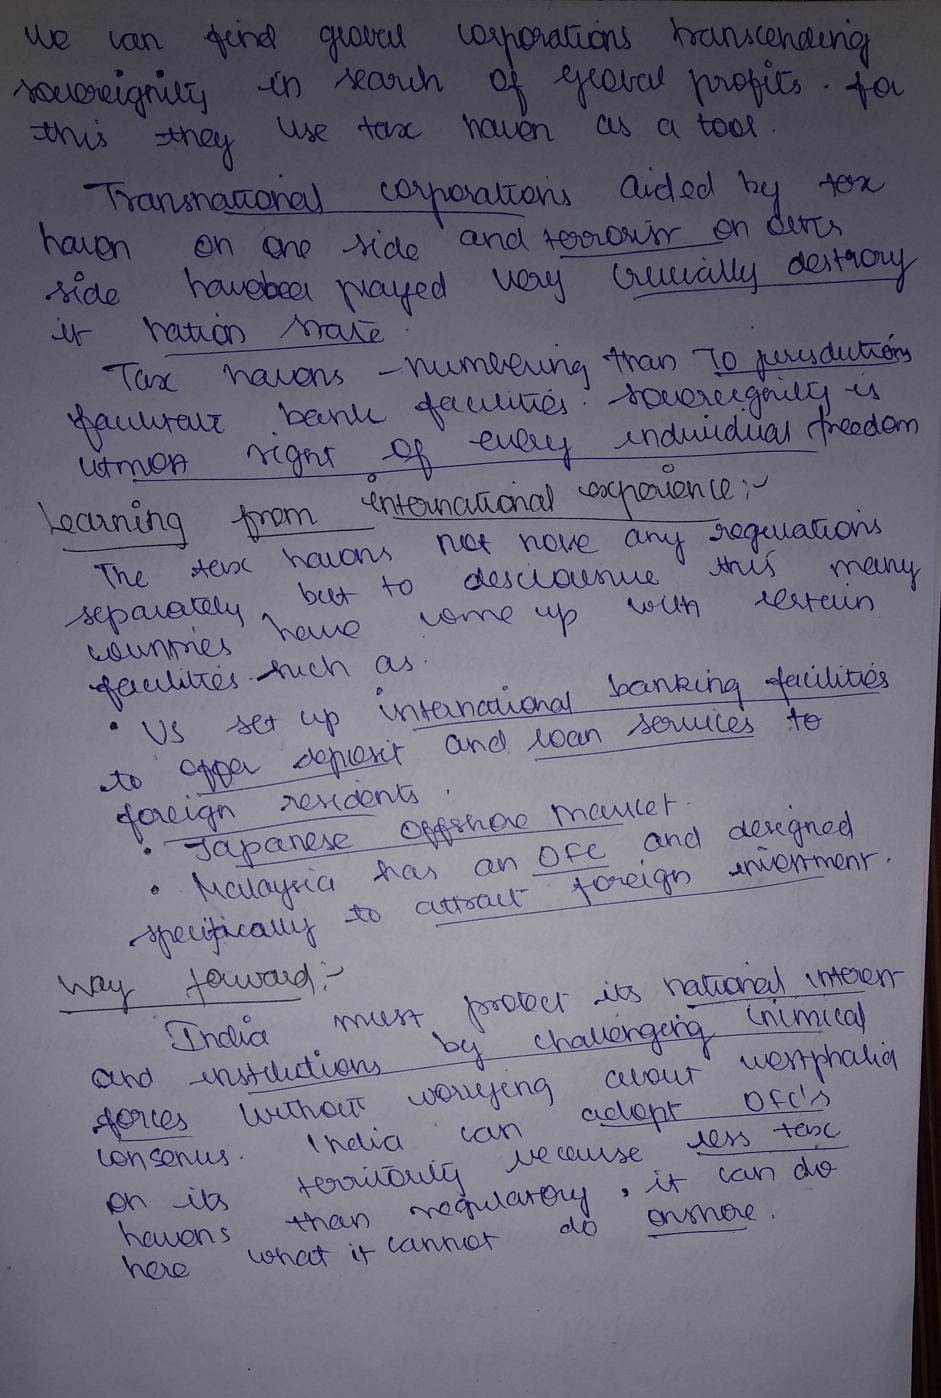 We can find global corporations transcending
sovereignity in search of global profits. for
this they use tax haven as a tool.
Transnational corporations aided by tax
haven on one side and terrorist on
side played very crucially destroy
it nation state.
Tax havens - numbering than 70
bank facilities. sovereignity is
utmost right of every individual freedom
Learning from international experience:-
The tax havens not have any regulations
separately, but to this many
countries have come up with certain
facilities such as.
• US set up international banking facilities
to offer deposit and loan services to
foreign residents.
• Japanese offshore market.
• Malaysia has an OFC and designed
specifically to attract foreign investment.
Way forward:-
India must protect its national interest
and institutions by challenging inimical
forces without worrying about westphalia
consensus. India can adopt OFC's
on its because less tax
havens than regulatory, it can do
here what it cannot do onshore.